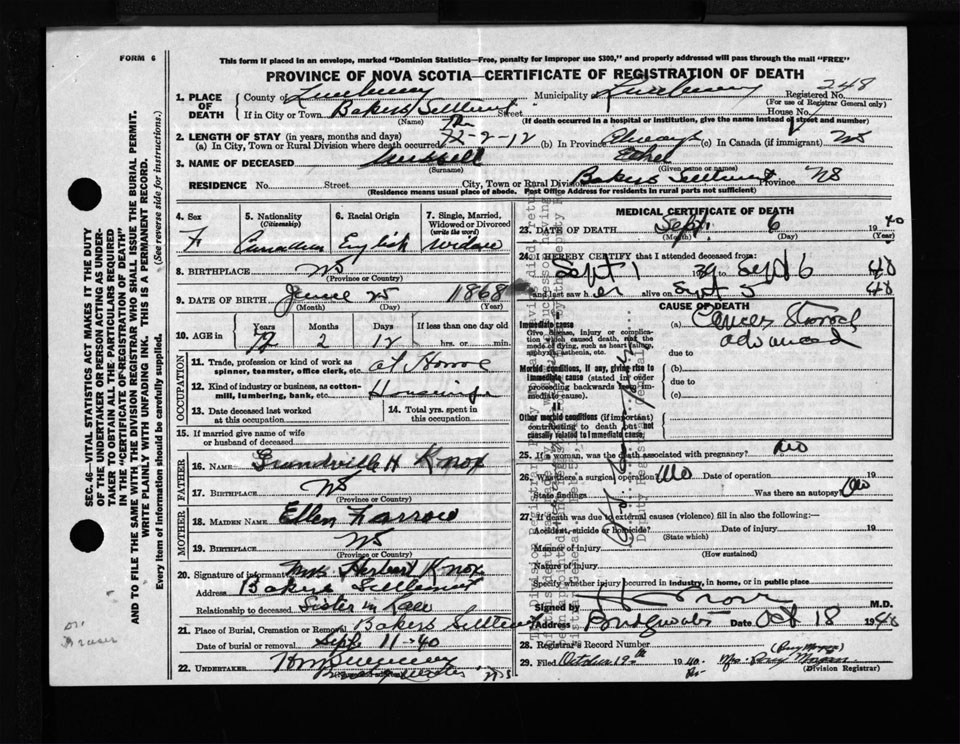 FORM 6
This form if placed in an envelope, marked "Dominion Statistics—Free, penalty for improper use $300," and properly addressed will pass through the mail "FREE"
PROVINCE OF NOVA SCOTIA—CERTIFICATE OF REGISTRATION OF DEATH
248
1. PLACE OF DEATH
County of Lunenburg Municipality Lunenburg Registered No.
(For use of Registrar General only)
If in City or Town Bakers Settlement Street House No.
(Name) (If death occurred in a hospital or institution, give its name instead of street and number)
2. LENGTH OF STAY (in years, months and days)
(a) In City, Town or Rural Division where death occurred 72-2-12 (b) In Province Always (c) In Canada (if immigrant) NS
3. NAME OF DECEASED Ethel
(Surname) (Given name or names)
RESIDENCE No. Street City, Town or Rural Division Bakers Settlement Province NS
(Residence means usual place of abode. Post Office Address for residents in rural parts not sufficient)
4. Sex
F
5. Nationality (Citizenship)
Canadian
6. Racial Origin
English
7. Single, Married, Widowed or Divorced (write the word)
widow
8. BIRTHPLACE NS
(Province or Country)
9. DATE OF BIRTH June 25 1868
(Month) (Day) (Year)
10. AGE in
Years Months Days If less than one day old
72 2 12 hrs. or min.
OCCUPATION
11. Trade, profession or kind of work as spinner, teamster, office clerk, etc. at Home
12. Kind of industry or business, as cotton-mill, lumbering, bank, etc.
13. Date deceased last worked at this occupation
14. Total yrs. spent in this occupation
15. If married give name of wife or husband of deceased
FATHER
16. NAME H Knox
17. BIRTHPLACE NS
(Province or Country)
MOTHER
18. MAIDEN NAME Ellen
19. BIRTHPLACE NS
(Province or Country)
20. Signature of informant Mrs Herbert Knox
Address Bakers Settlement
Relationship to deceased Sister in Law
21. Place of Burial, Cremation or Removal Bakers Settlement
Date of burial or removal Sept 11-40
22. UNDERTAKER
NS
MEDICAL CERTIFICATE OF DEATH
23. DATE OF DEATH Sept. 6 1940
(Month) (Day) (Year)
24. I HEREBY CERTIFY that I attended deceased from:
Sept 1 39 to Sept 6 40
and last saw h er alive on Sept 5 40
CAUSE OF DEATH
I.
Immediate cause
Give disease, injury or complication which caused death, not the mode of dying, such as heart failure, asphyxia, asthenia, etc.
(a) Cancer Stomach
advanced
due to
Morbid conditions, if any, giving rise to immediate cause (stated in order proceeding backwards from immediate cause).
(b)
due to
(c)
II.
Other morbid conditions (if important) contributing to death but not causally related to immediate cause.
25. If a woman, was the death associated with pregnancy? no
26. Was there a surgical operation? No Date of operation 19
State findings Was there an autopsy? No
27. If death was due to external causes (violence) fill in also the following:—
Accident, suicide or homicide? Date of injury 19
(State which)
Manner of injury
(How sustained)
Nature of injury
Specify whether injury occurred in industry, in home, or in public place
Signed by M.D.
Address Bridgewater Date Oct 18 1940
28. Registrar's Record Number
29. Filed October 19th 1940
(Division Registrar)
SEC. 46—VITAL STATISTICS ACT MAKES IT THE DUTY OF THE UNDERTAKER OR PERSON ACTING AS UNDERTAKER TO OBTAIN ALL THE PARTICULARS REQUIRED IN THE "CERTIFICATE OF REGISTRATION OF DEATH" AND TO FILE THE SAME WITH THE DIVISION REGISTRAR WHO SHALL ISSUE THE BURIAL PERMIT.
WRITE PLAINLY WITH UNFADING INK. THIS IS A PERMANENT RECORD.
Every item of information should be carefully supplied. (See reverse side for instructions.)